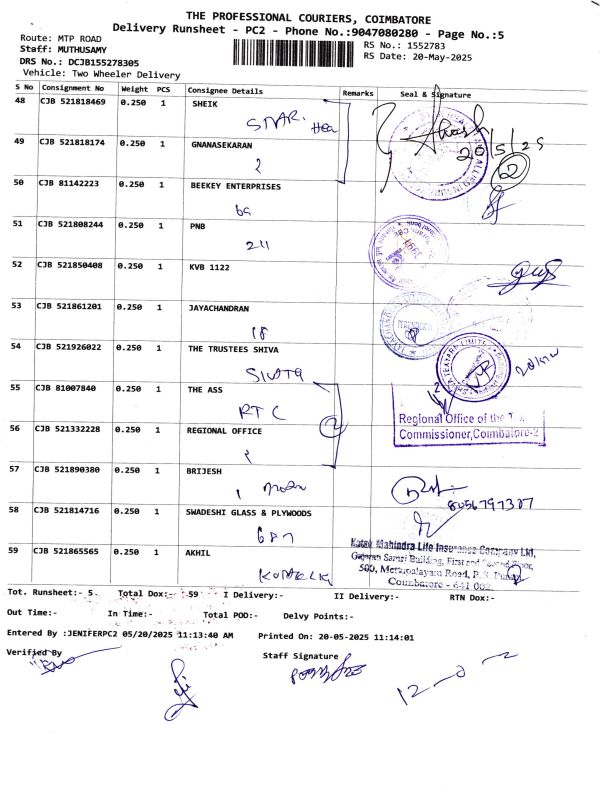 THE PROFESSIONAL COURIERS, COIMBATORE
Delivery Runsheet - PC2 - Phone No.:9047080280 - Page No.:5
Route: MTP ROAD
RS No.: 1552783
Staff: MUTHUSAMY
RS Date: 20-May-2025
DRS No.: DCJB155278305
Vehicle: Two Wheeler Delivery
S No Consignment No Weight PCS Consignee Details Remarks Seal & Signature
48 CJB 521818469 0.250 1 SHEIK
STAR. Hea
49 CJB 521818174 0.250 1 GNANASEKARAN
20/5/25
62
50 CJB 81142223 0.250 1 BEEKEY ENTERPRISES
51 CJB 521808244 0.250 1 PNB
211
52 CJB 521850408 0.250 1 KVB 1122
53 CJB 521861201 0.250 1 JAYACHANDRAN
18
54 CJB 521926022 0.250 1 THE TRUSTEES SHIVA
55 CJB 81007840 0.250 1 THE ASS
RTC
2
Regional Office of the
Commissioner,Coimbatore-2
56 CJB 521332228 0.250 1 REGIONAL OFFICE
57 CJB 521890380 0.250 1 BRIJESH
8056797387
58 CJB 521814716 0.250 1 SWADESHI GLASS & PLYWOODS
687
59 CJB 521865565 0.250 1 AKHIL
Kotak Mahindra Life Insurance Company Ltd,
Gajanan Samsi Building, First and Second Floor,
500, Mettupalayam Road, R.S. Puram
Coimbatore - 641 002.
Tot. Runsheet:- 5 Total Dox:- 59 I Delivery:- II Delivery:- RTN Dox:-
Out Time:- In Time:- Total POD:- Delvy Points:-
Entered By :JENIFERPC2 05/20/2025 11:13:40 AM Printed On: 20-05-2025 11:14:01
Verified By Staff Signature
12-0-2